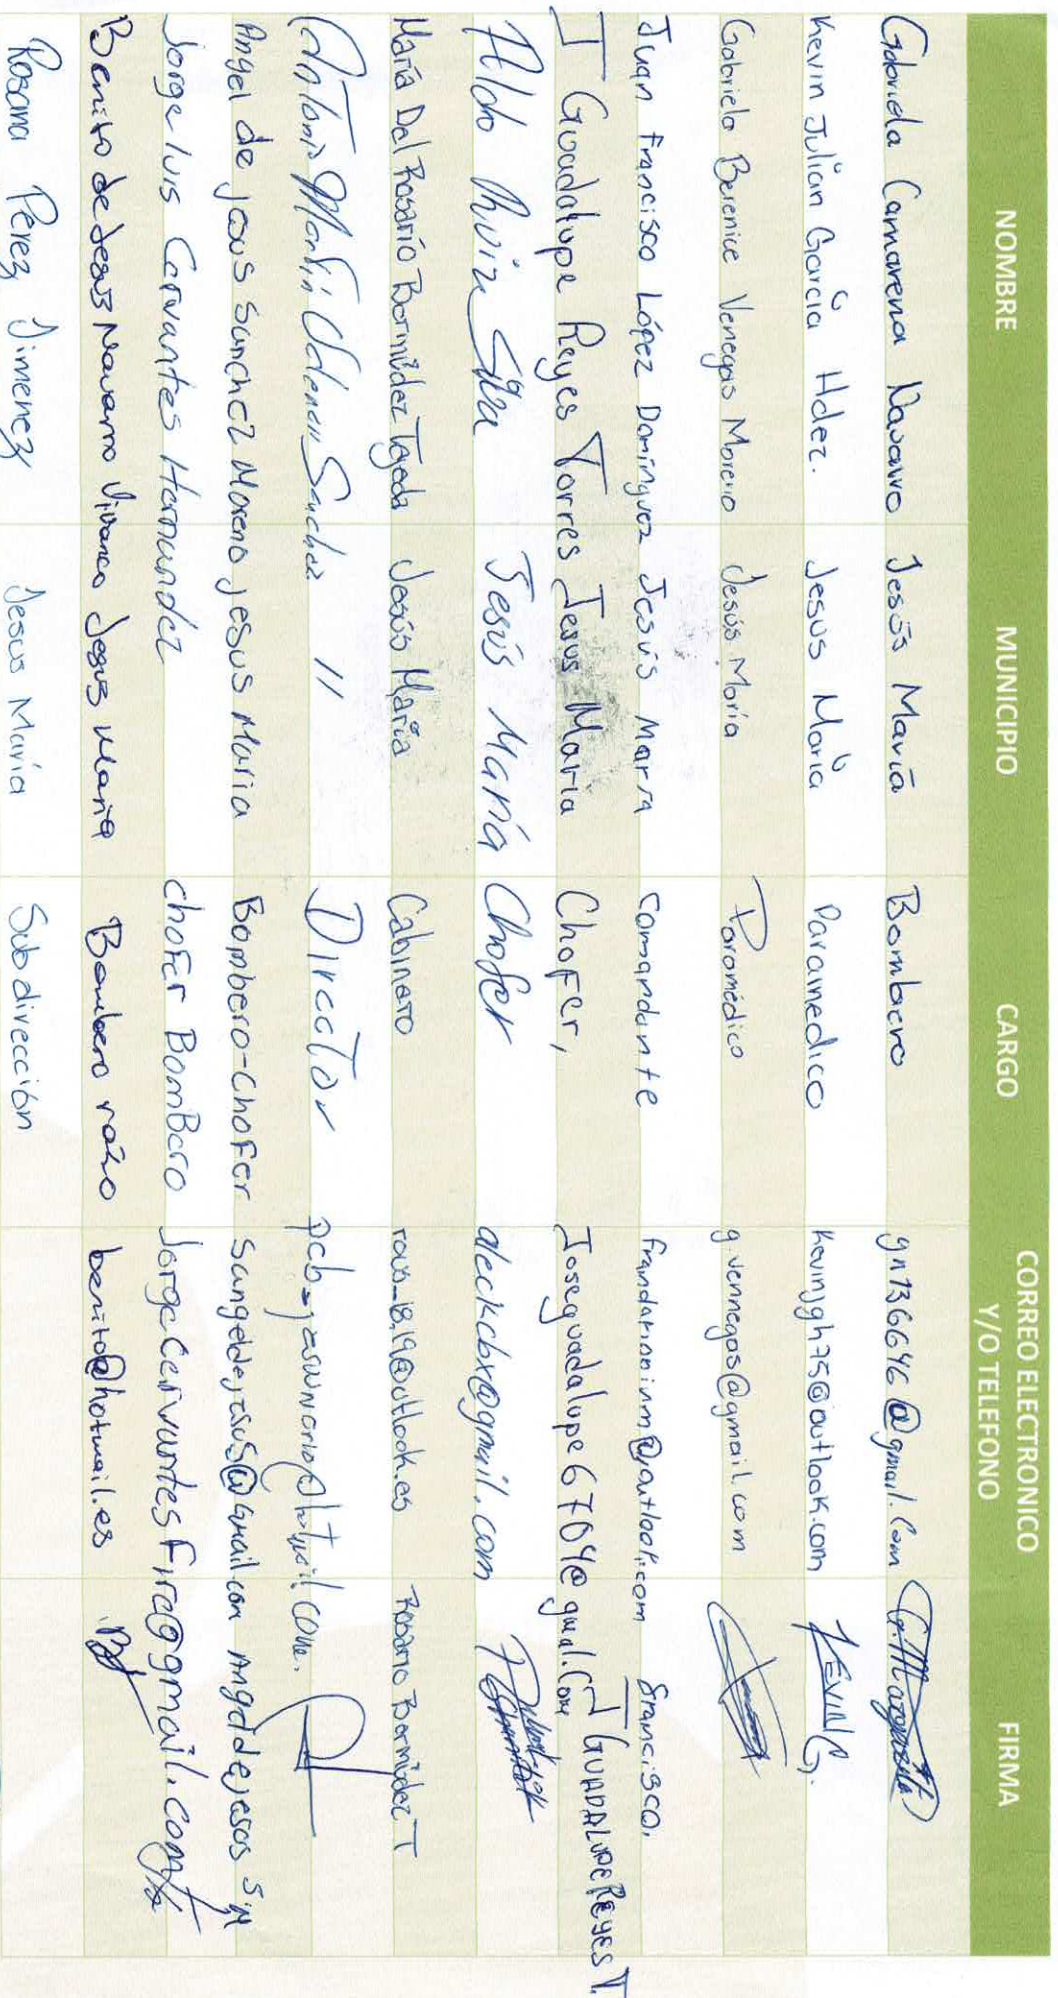 NOMBRE MUNICIPIO CARGO CORREO ELECTRONICO Y/O TELEFONO FIRMA
Gabriela Camarena Navarro Jesús María Bombero gn136646@gmail.com
Kevin Julián García Hdez. Jesus María Paramedico kevinjgh75@outlook.com KEVIN G.
Gabriela Berenice Venegas Moreno Jesús María Paramédico g.vennegas@gmail.com
Juan Francisco López Domínguez Jesús María Comandante @outlook.com Francisco.
J Guadalupe Reyes Torres Jesus María Chofer, Joseguadalupe6704@gmal.com J GUADALUPE Reyes T.
Aldo Jesús María Chofer aleckdbx@gmail.com
María Del Rosario Bermúdez Tejeda Jesús María Cabinero rous_18.19@outlook.es Rosario Bermúdez T
Martín Sanchez 11 Director
Angel de jesus Sanchez Moreno jesus Maria Bombero-Chofer Sangeldejesus@gmail.com Angel de jesos S.M
Jorge luis Cervantes Hernandez chofer BomBero JorgeCervantesfire@gmail.com
Benito de Jesus Navarro Vivanco Jesus María Bombero raso benito@hotmail.es
Rosana Perez Jimenez Jesus María Subdirección